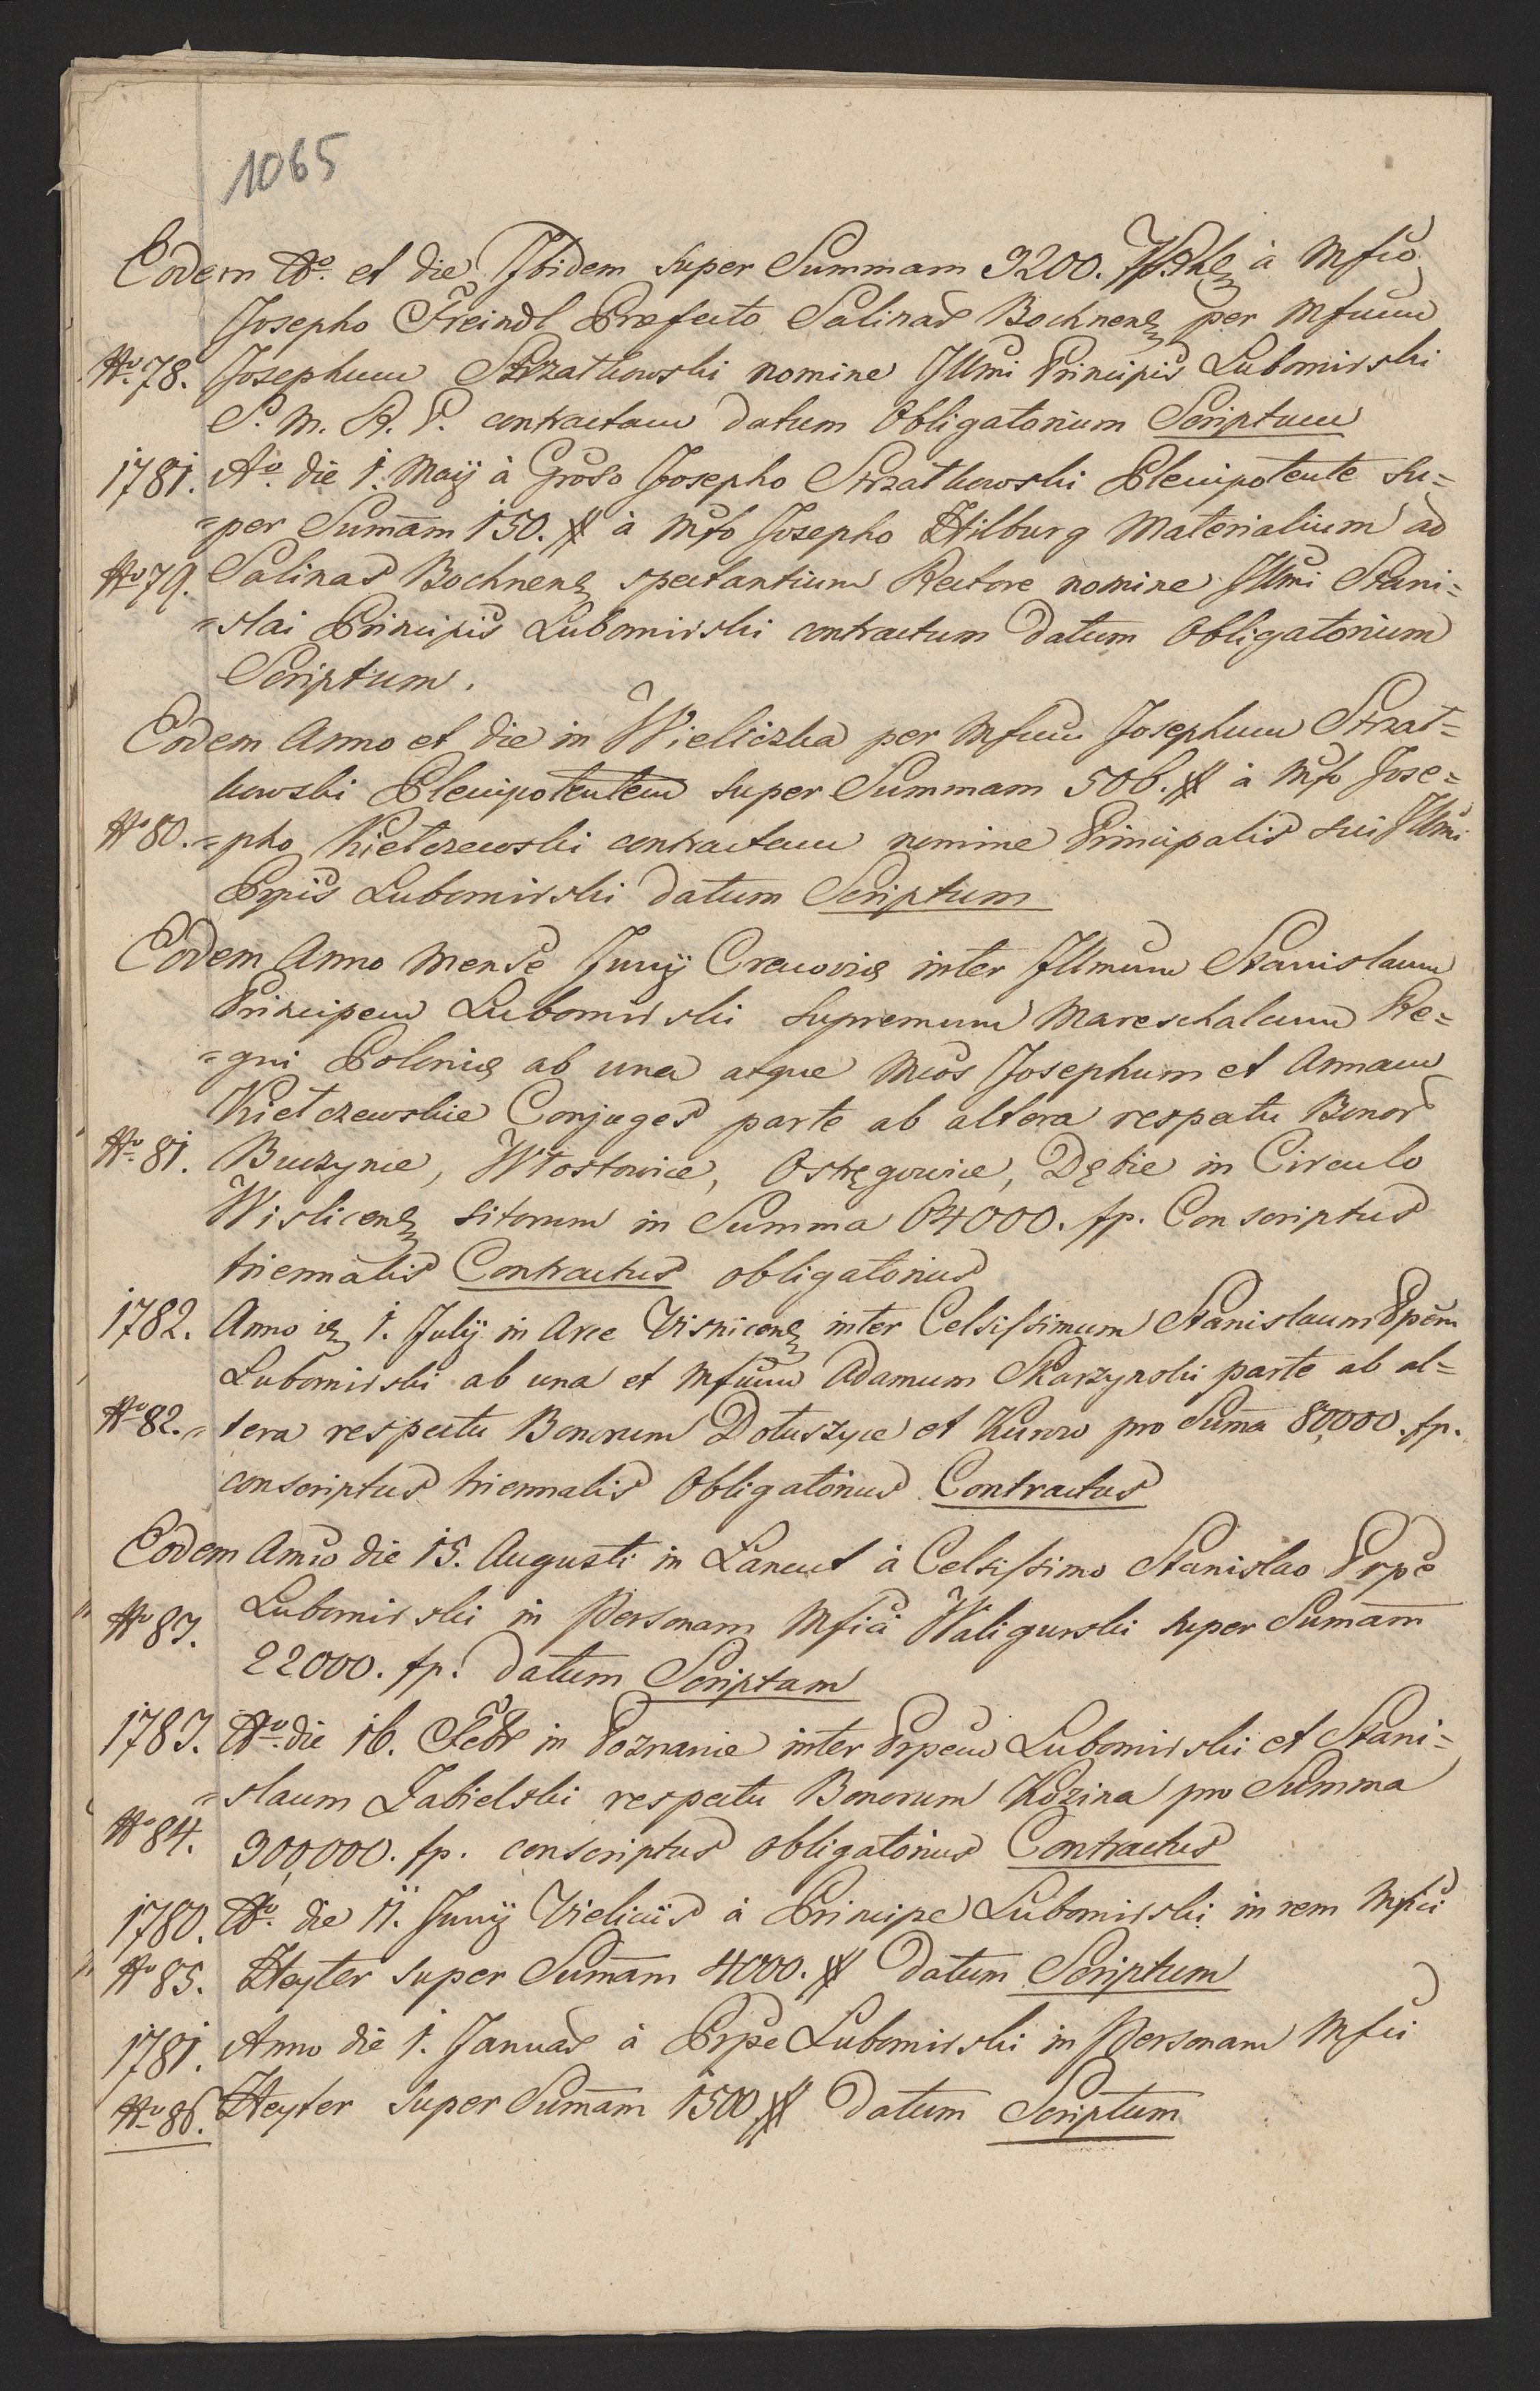 1065
Eodem Ao. et die Ibidem super Summam 3200. à Mfico
Josepho Freindl Præfecto Salinar Bochnens per Mficum
No. 78. Josephum Strzatkowski nomine Illmi Principis Lubomirski
S. M. R. P. contractam datum Obligatorium Scriptum
1781. Ao. die 1. Maij à Groso Josepho Strzatkowski Plenipotente su=
=per Sumam 150. # à Mfo Josepho Hilburg Materialium ad
No 79. Salinas Bochnens spectantium Rectore nomine Illmi Stani=
=slai Principis Lubomirski contractum datum Obligatorium
Scriptum.
Eodem Anno et die in Wieliczka per Mficum Josephum Strzat=
kowski Plenipotentem super Summam 506. # à Mfo Jose=
No 80. =pho Kietczewski contractam nomine Principalis sui Illmi
Ppis Lubomirski datum Scriptum
Eodem Anno Mense Junij Cracoviæ inter Illmum Stanislaum
Principem Lubomirski Supremum Mareschalcum Re=
=gni Poloniæ ab una atque Mcos Josephum et Annam
Kietczewskie Conjuges parte ab altera respectu Bonor
No. 81. Buczynie, Wtostowice, Ostręgowice, Dębie in Circulo
Wislicens sitorum in Summa 64000. fp. Conscriptus
triennalis Contractus obligatorius
1782. Anno 1. Julij in Arce Visnicens inter Celsissimum Stanislaum Ppem
Lubomirski ab una et Mficum Adamum Skarzynski parte ab al=
No 82. =tera respectu Bonorum Dotuszyce et Kunow pro Suma 80,000. fp.
conscriptus triennalis Obligatorius Contractus
Eodem Anno die 15. Augusti in Lancut à Celsissimo Stanislao Prpe
No 83. Lubomirski in Personam Mfici Waligurski super Sumam
22000. fp. datum Scriptam
1783. Ao. die 16. Febr in Poznanie inter Prpem Lubomirski et Stani=
=slaum Zabielski respectu Bonorum Kozina pro Summa
No 84. 300,000. fp. conscriptus obligatorius Contractus
1780. Ao. die 11. Junij Vieliciis à Principe Lubomirski in rem Mfici
No 85. Heyter super Sumam 4000. # datum Scriptum
1781. Anno die 1. Januar à Prpe Lubomirski in Personam Mfici
No 86. Heyter super Sumam 1500 # datum Scriptum